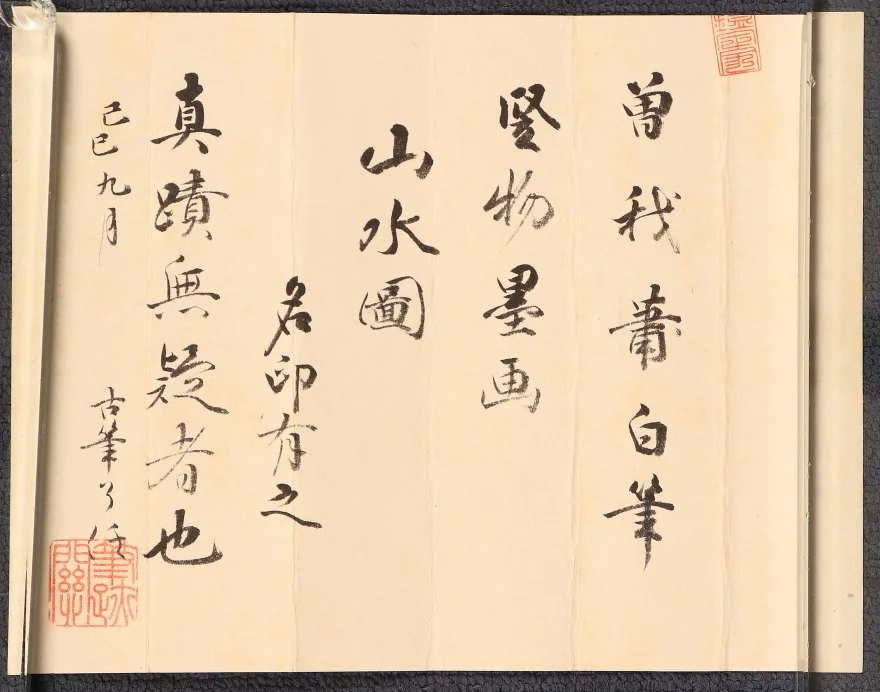 曽我蕭白筆
竪物墨画
山水圖
名印有之
真蹟無疑者也
己巳九月
古筆了任